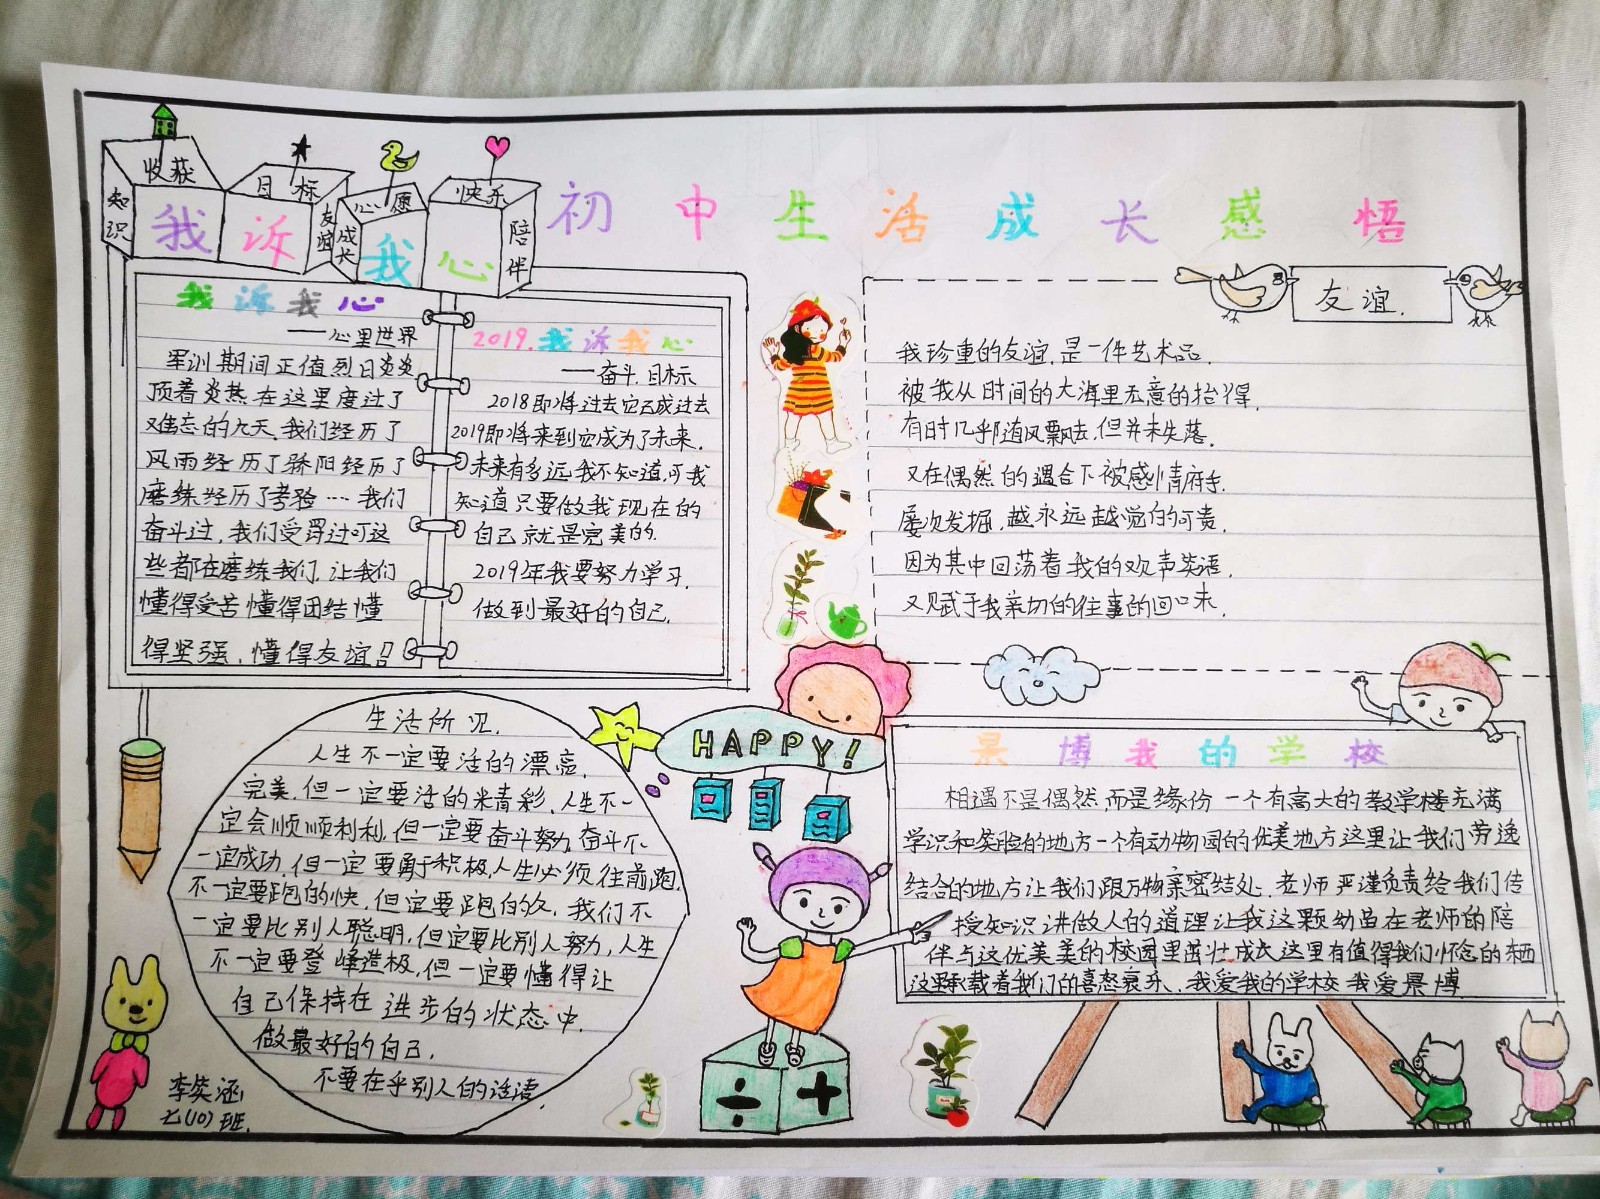 收获
知识
目标
友谊
心愿
成长
快乐
陪伴
我诉我心
初中生活成长感悟
我诉我心
——心里世界
军训期间正值烈日炎炎
顶着炎热在这里度过了
难忘的九天.我们经历了
风雨经历了骄阳经历了
磨练经历了考验……我们
奋斗过,我们受罚过可这
些都在磨练我们.让我们
懂得受苦懂得团结懂
得坚强,懂得友谊!
2019.我诉我心
——奋斗.目标
2018即将过去它已成过去
2019即将来到它成为了未来.
未来有多远我不知道,可我
知道只要做我现在的
自己就是完美的.
2019年我要努力学习.
做到最好的自己.
友谊.
我珍重的友谊,是一件艺术品.
被我从时间的大海里无意的拾得,
有时几乎随风飘去,但并未失落.
又在偶然的遇合下被感情
屡次发掘,越永远越觉的可贵.
因为其中回荡着我的欢声笑语.
又赋于我亲切的往事的回味.
生活所见.
人生不一定要活的漂亮,
完美.但一定要活的精彩.人生不一
定会顺顺利利.但一定要奋斗努力奋斗不
一定成功.但一定要勇于积极人生必须往前跑.
不一定要跑的快.但定要跑的久.我们不
一定要比别人聪明,但定要比别人努力,人生
不一定要登峰造极,但一定要懂得让
自己保持在进步的状态中.
做最好的自己.
不要在乎别人的话语.
HAPPY!
景博我的学校
相遇不是偶然,而是缘份一个有高大的教学楼充满
学识和笑脸的地方一个有动物园的优美地方这里让我们劳逸
结合的地方让我们跟万物亲密结处.老师严谨负责给我们传
授知识讲做人的道理让我这颗幼苗在老师的陪
伴与这优美美的校园里茁壮成长这里有值得我们怀念的东西
这里承载着我们的喜怒哀乐、我爱我的学校我爱景博
÷ +
李笑涵
七(10)班.